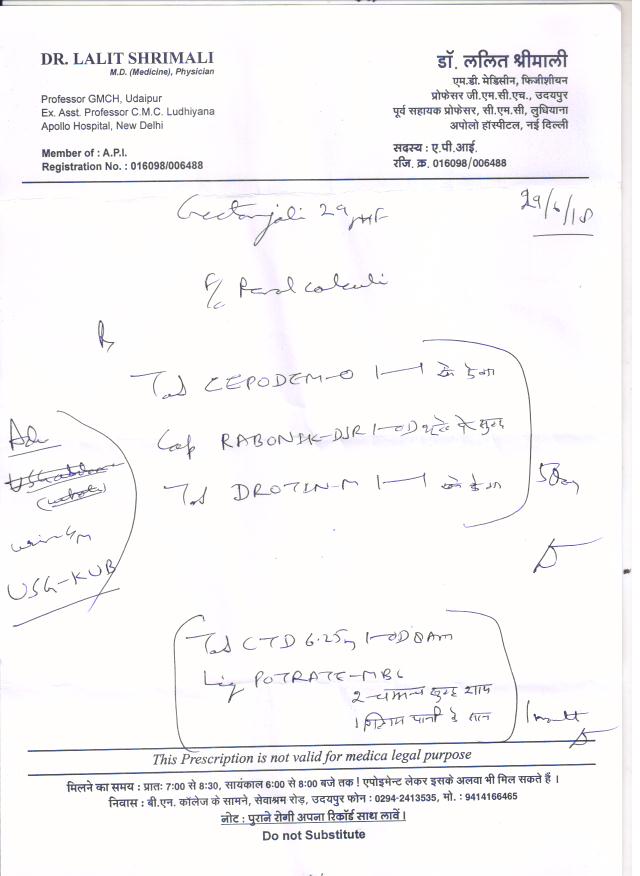 DR. LALIT SHRIMALI
M.D. (Medicine), Physician
Professor GMCH, Udaipur
Ex. Asst. Professor C.M.C. Ludhiyana
Apollo Hospital, New Delhi
Member of : A.P.I.
Registration No. : 016098/006488
डॉ. ललित श्रीमाली
एम.डी. मेडिसीन, फिजीशीयन
प्रोफेसर जी.एम.सी.एच., उदयपुर
पूर्व सहायक प्रोफेसर, सी.एम.सी, लुधियाना
अपोलो हॉस्पीटल, नई दिल्ली
सदस्य : ए.पी.आई.
रजि. क्र. 016098/006488
Geetanjali 29
29/6/18
Renal calculi
Tab CEPODEM-O 1—1
Cap RABONIK-DSR 1-OD
Tab DROTIN-M 1—1
5 Day
Adv
urine
USG-KUB
Tab CTD 6.25 1-OD 8AM
Liq POTRATE-MB6
2-चम्मच सुबह शाम
1 गिलास पानी के साथ
1 month
This Prescription is not valid for medica legal purpose
मिलने का समय : प्रातः 7:00 से 8:30, सायंकाल 6:00 से 8:00 बजे तक ! एपोइमेन्ट लेकर इसके अलवा भी मिल सकते हैं ।
निवास : बी.एन. कॉलेज के सामने, सेवाश्रम रोड़, उदयपुर फोन : 0294-2413535, मो. : 9414166465
नोट : पुराने रोगी अपना रिकॉर्ड साथ लावें ।
Do not Substitute